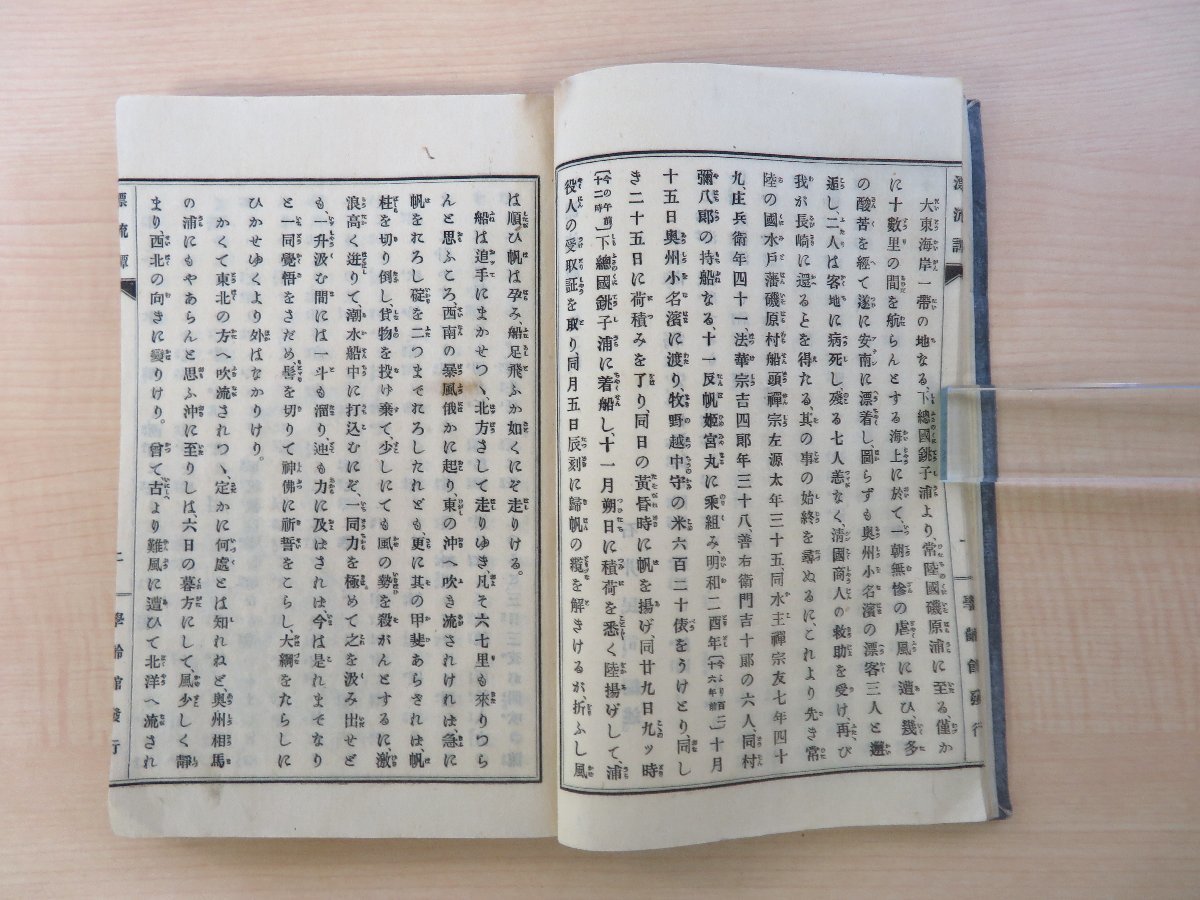 漂流譚
大東海岸一帶の地なる、下總國銚子浦より、常陸國磯原浦に至る僅か
に十數里の間を航らんとする海上に於て一朝無慘の虐風に遭ひ幾多
の酸苦を經て遂に安南に漂着し、圖らずも奥州小名濱の漂客三人と邂
逅し二人は客地に病死し殘る七人恙なく、清國商人の救助を受け、再び
我が長崎に還るとを得たる其の事の始終を尋ぬるに、これより先き常
陸の國水戸藩磯原村船頭禪宗左源太年三十五、同水主禪宗友七年四十
九、庄兵衛年四十一、法華宗吉四郎年三十八、善右衛門吉十郎の六人、同村
彌八郎の持船なる、十一反帆姫宮丸に乘組み、明和二酉年(今より百二十六年前)十月
十五日奥州小名濱に渡り、牧野越中守の米六百二十俵をうけとり、同し
き二十五日に荷積みを了り、同日の黄昏時に帆を揚げ、同廿九日九ッ時
(今の午前十二時)下總國銚子浦に着船し、十一月朔日に積荷を悉く陸揚げして、浦
役人の受取証を取り同月五日辰刻に歸帆の纜を解きけるが、折ふし風
一
學齡館發行
ば順ひ帆は孕み船足飛ふか如くにぞ走りける。
船は追手にまかせつヽ、北方さして走りゆき、凡そ六七里も來りつら
んと思ふころ、西南の暴風俄かに起り、東の沖へ吹き流されけれは、急に
帆をれろし碇を二つまでれろしたれども、更に其の甲斐あらされは、帆
柱を切り倒し、貨物を投け棄て少しにても風の勢を殺がんとするに、激
浪高く迸りて、潮水船中に打込むにぞ、一同力を極めて之を汲み出せど
も、一升汲む間には一斗も溜り、迚も力に及はされは、今は是れまでなり
と一同覺悟をさだめ髻を切りて神佛に祈誓をこらし、大綱をたらしに
ひかせゆくより外はなかりけり。
かくて東北の方へ吹流されつヽ、定かに何處とは知れねど、奥州相馬
の浦にもやあらんと思ふ沖に至りしは六日の暮方にして、風少しく靜
まり、西北の向きに變りけり。曾て古より難風に遭ひて北洋へ流され
漂流譚
二
學齡館發行